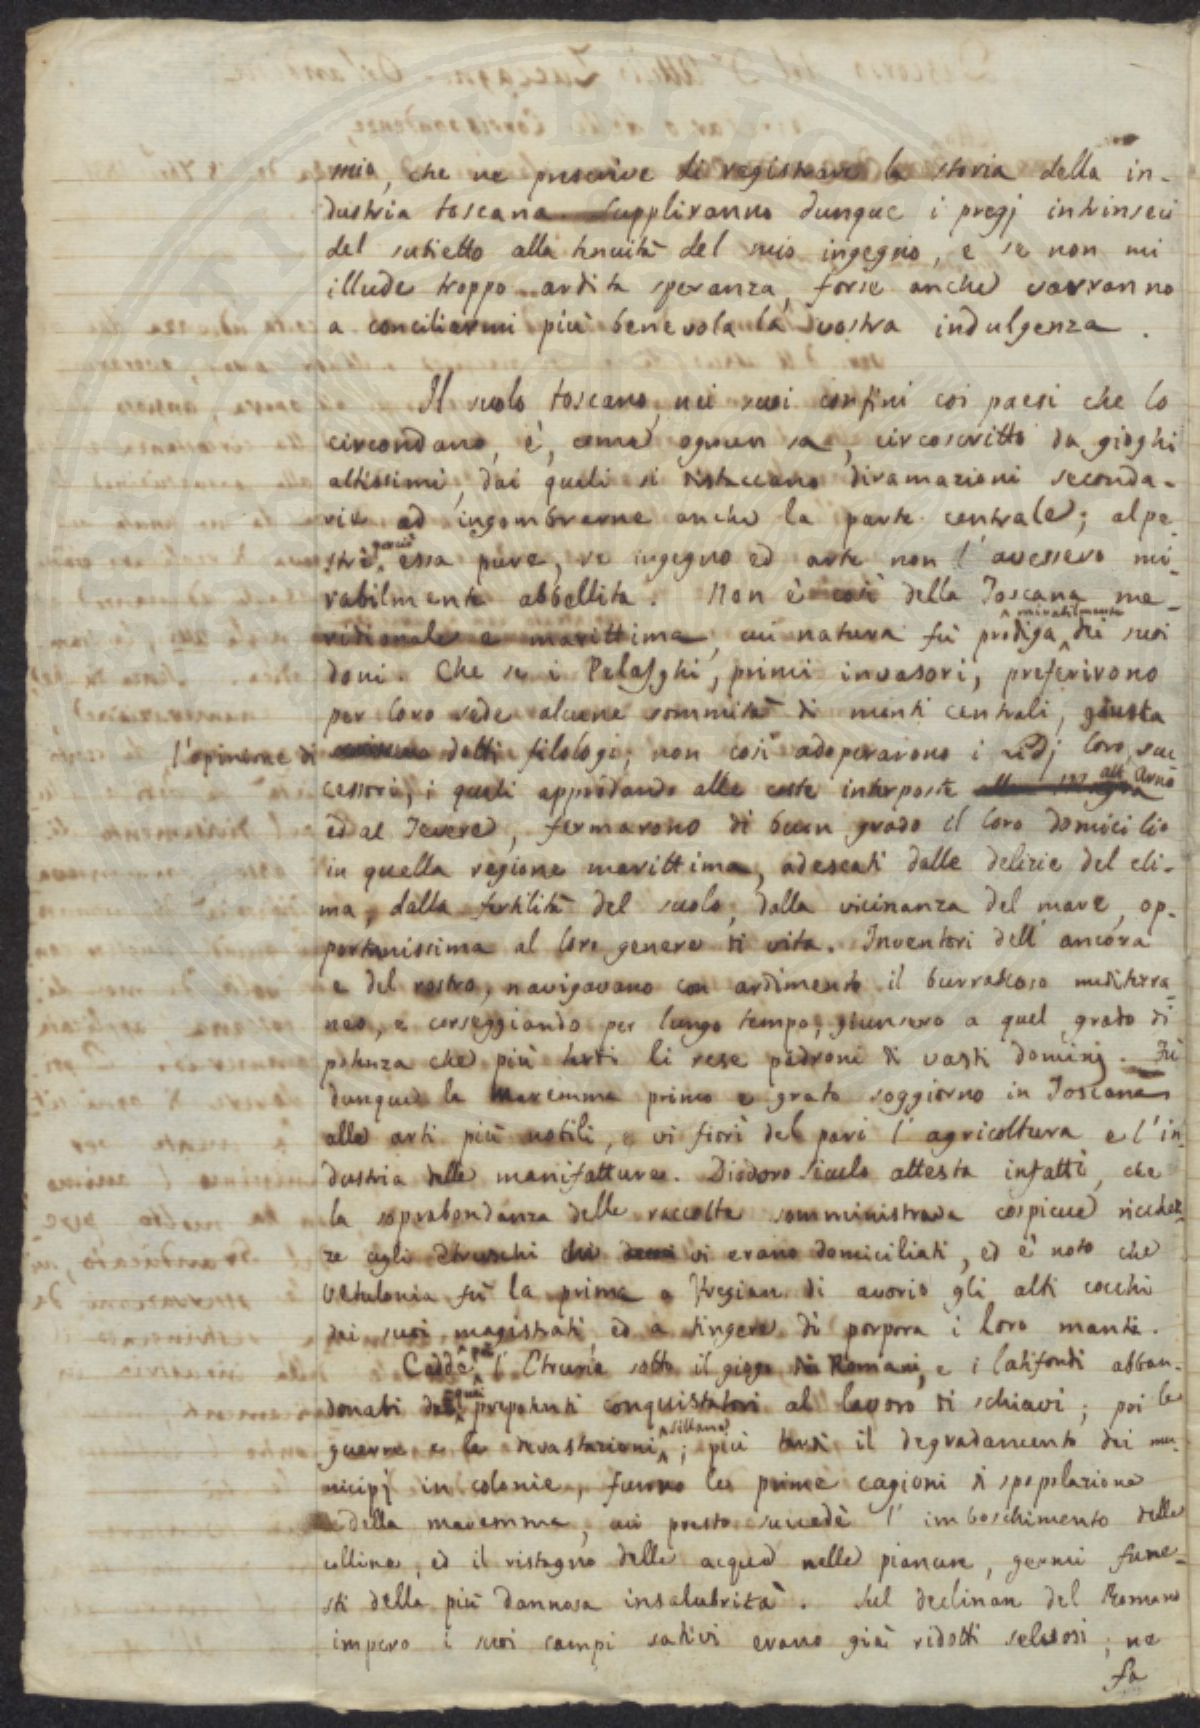 mia, che ne prescrive di registrare la storia della in-
dustria toscana. Suppliranno dunque i pregj intrinseci
del subietto alla tenuità del mio ingegno, e se non mi
illude troppo ardita speranza, forse anche varranno
a conciliarmi più benevola la vostra indulgenza.
Il suolo toscano, nei suoi confini coi paesi che lo
circondano, è, come ognun sa, circoscritto da gioghi
altissimi, dai quali si distaccano diramazioni seconda-
rie ad ingombrarne anche la parte centrale; alpe-
stre essa pure, se ingegno ed arte non l'avessero mi-
rabilmente abbellita. Non è così della Toscana me-
ridionale e marittima, cui natura fù prodiga mirabilmente dei suoi
doni. Che se i Pelasghi, primi invasori, preferirono
per loro sede alcune sommità di monti centrali, giusta
l'opinione di dotti filologi, non così adoperarono i Lidj loro suc-
cessori, i quali approdando alle coste interposte all'Arno
ed al Tevere, fermarono di buon grado il loro domicilio
in quella regione marittima, adescati dalle delizie del cli-
ma, dalla fertilità del suolo, dalla vicinanza del mare, op-
portunissima al loro genere di vita. Inventori dell'ancora
e del rostro, navigavano con ardimento il burrascoso mediterra-
neo, e corseggiando per lungo tempo, giunsero a quel grado di
potenza che più tardi li rese padroni di vasti dominj. Fù
dunque la Maremma primo e grato soggiorno in Toscana
alle arti più nobili, e vi fiorì del pari l'agricoltura e l'in-
dustria delle manifatture. Diodoro Siculo attesta infatti, che
la soprabondanza delle raccolte somministrava cospicue ricchez-
ze agli Etruschi che vi erano domiciliati, ed è noto che
Vetulonia fù la prima a fregiare di avorio gli alti cocchi
dei suoi magistrati ed a tingere di porpora i loro manti.
Cadde poi l'Etruria sotto il giogo dei Romani, e i latifondi abban-
donati dai prepotenti conquistatori al lavoro di schiavi; poi le
guerre e le devastazioni sillane; più tardi il degradamento dei mu-
nicipj in colonie, furono le prime cagioni di spopolazione
della maremma, cui presto succedè l'imboschimento delle
colline, ed il ristagno delle acque nelle pianure, germi fune-
sti della più dannosa insalubrità. Sul declinare del Romano
impero i suoi campi sativi erano già ridotti selvosi; ne
fa